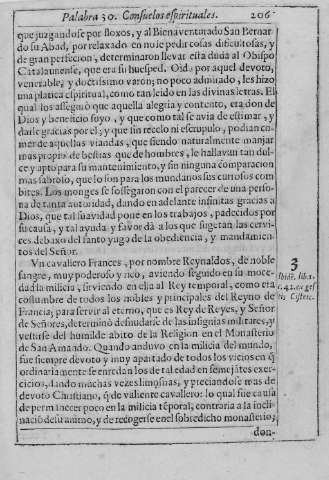 Palabra 30. Consuelos espirituales. 206
que juzgandose por floxos, y al Bienaventurado San Bernar
do su Abad, por relaxado en no le pedir cosas dificultosas, y
de gran perfeccion, determinaron llevar esta duda al Obispo
Catalaunense, que era su huesped. Oida por aquel devoto,
venerable, y doctissimo varon; no poco admirado, les hizo
una platica espiritual, como tan leido en las divinas letras. El
qual los asseguró que aquella alegria y contento, era don de
Dios y beneficio suyo, y que como tal se avia de estimar, y
darle gracias por el; y que sin recelo ni escrupulo, podian co-
mer de aquellas viandas, que siendo naturalmente manjar
mas propia de bestias que de hombres, le hallavan tan dul-
ce y apto para su mantenimiento, y sin ninguna comparacion
mas sabroso, que lo son para los mundanos sus curiosos com
bites. Los monges se sossegaron con el parecer de una perso
na de tanta autoridad, dando en adelante infinitas gracias a
Dios, que tal suavidad pone en los trabajos, padecidos por
su causa, y tal ayuda y favor dà a los que sugetan las cervi-
ces debaxo del santo yugo de la obediencia, y mandamien-
tos del Señor.
Un cavallero Frances, por nombre Reynaldos, de noble
sangre, muy poderoso y rico, aviendo seguido en su moce-
dad la milicia, sirviendo en ella al Rey temporal, como era
costumbre de todos los nobles y principales del Reyno de
Francia; para servir al eterno, que es Rey de Reyes, y Señor
de Señores, determinò desnudarse de las insignias militares, y
vestirse del humilde abito de la Religion en el Monasterio
de San Amando. Quando anduvo en la milicia del mundo,
fue siempre devoto y muy apartado de todos los vicios en q̃
ordinariamente se enredan los de tal edad en semejãtes exer-
cicios, dando muchas vezes limosnas, y preciandose mas de
devoto Christiano, q̃ de valiente cavallero: lo qual fue causa
de permanecer poco en la milicia tẽporal, contraria a la incli-
nació de su animo, y de recogerse en el sobredicho monasterio,
don-
3
lib. 1.
c. 42.
Cisterc.